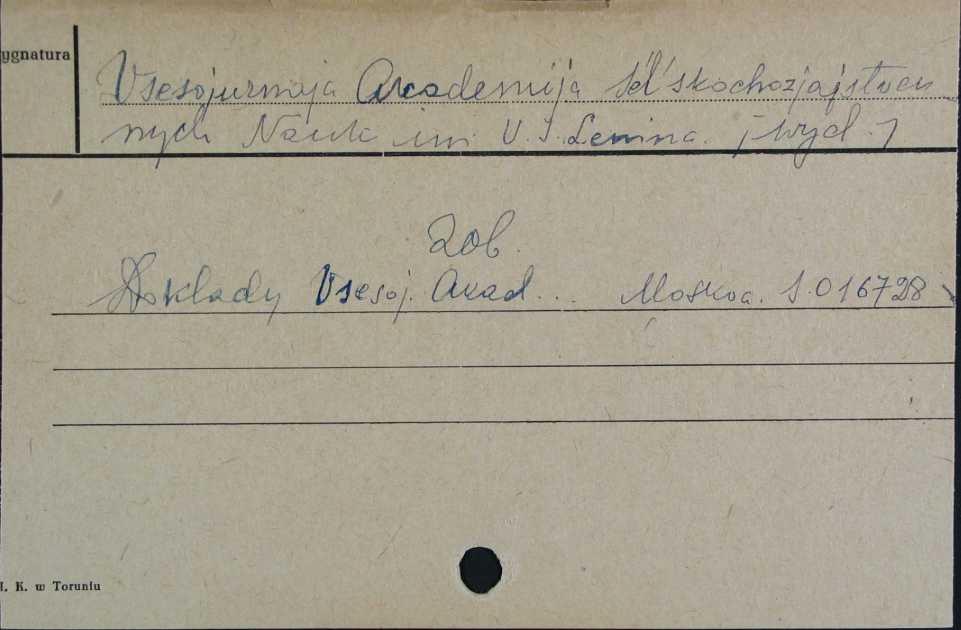 ygnatura
Vsesojuznaja Akademija Sel'skochozjajstven
nych Nauk im V. I. Lenina. [wyd.]
zob.
Doklady Vsesoj. Akad... Moskva. S.016728
I. K. w Toruniu